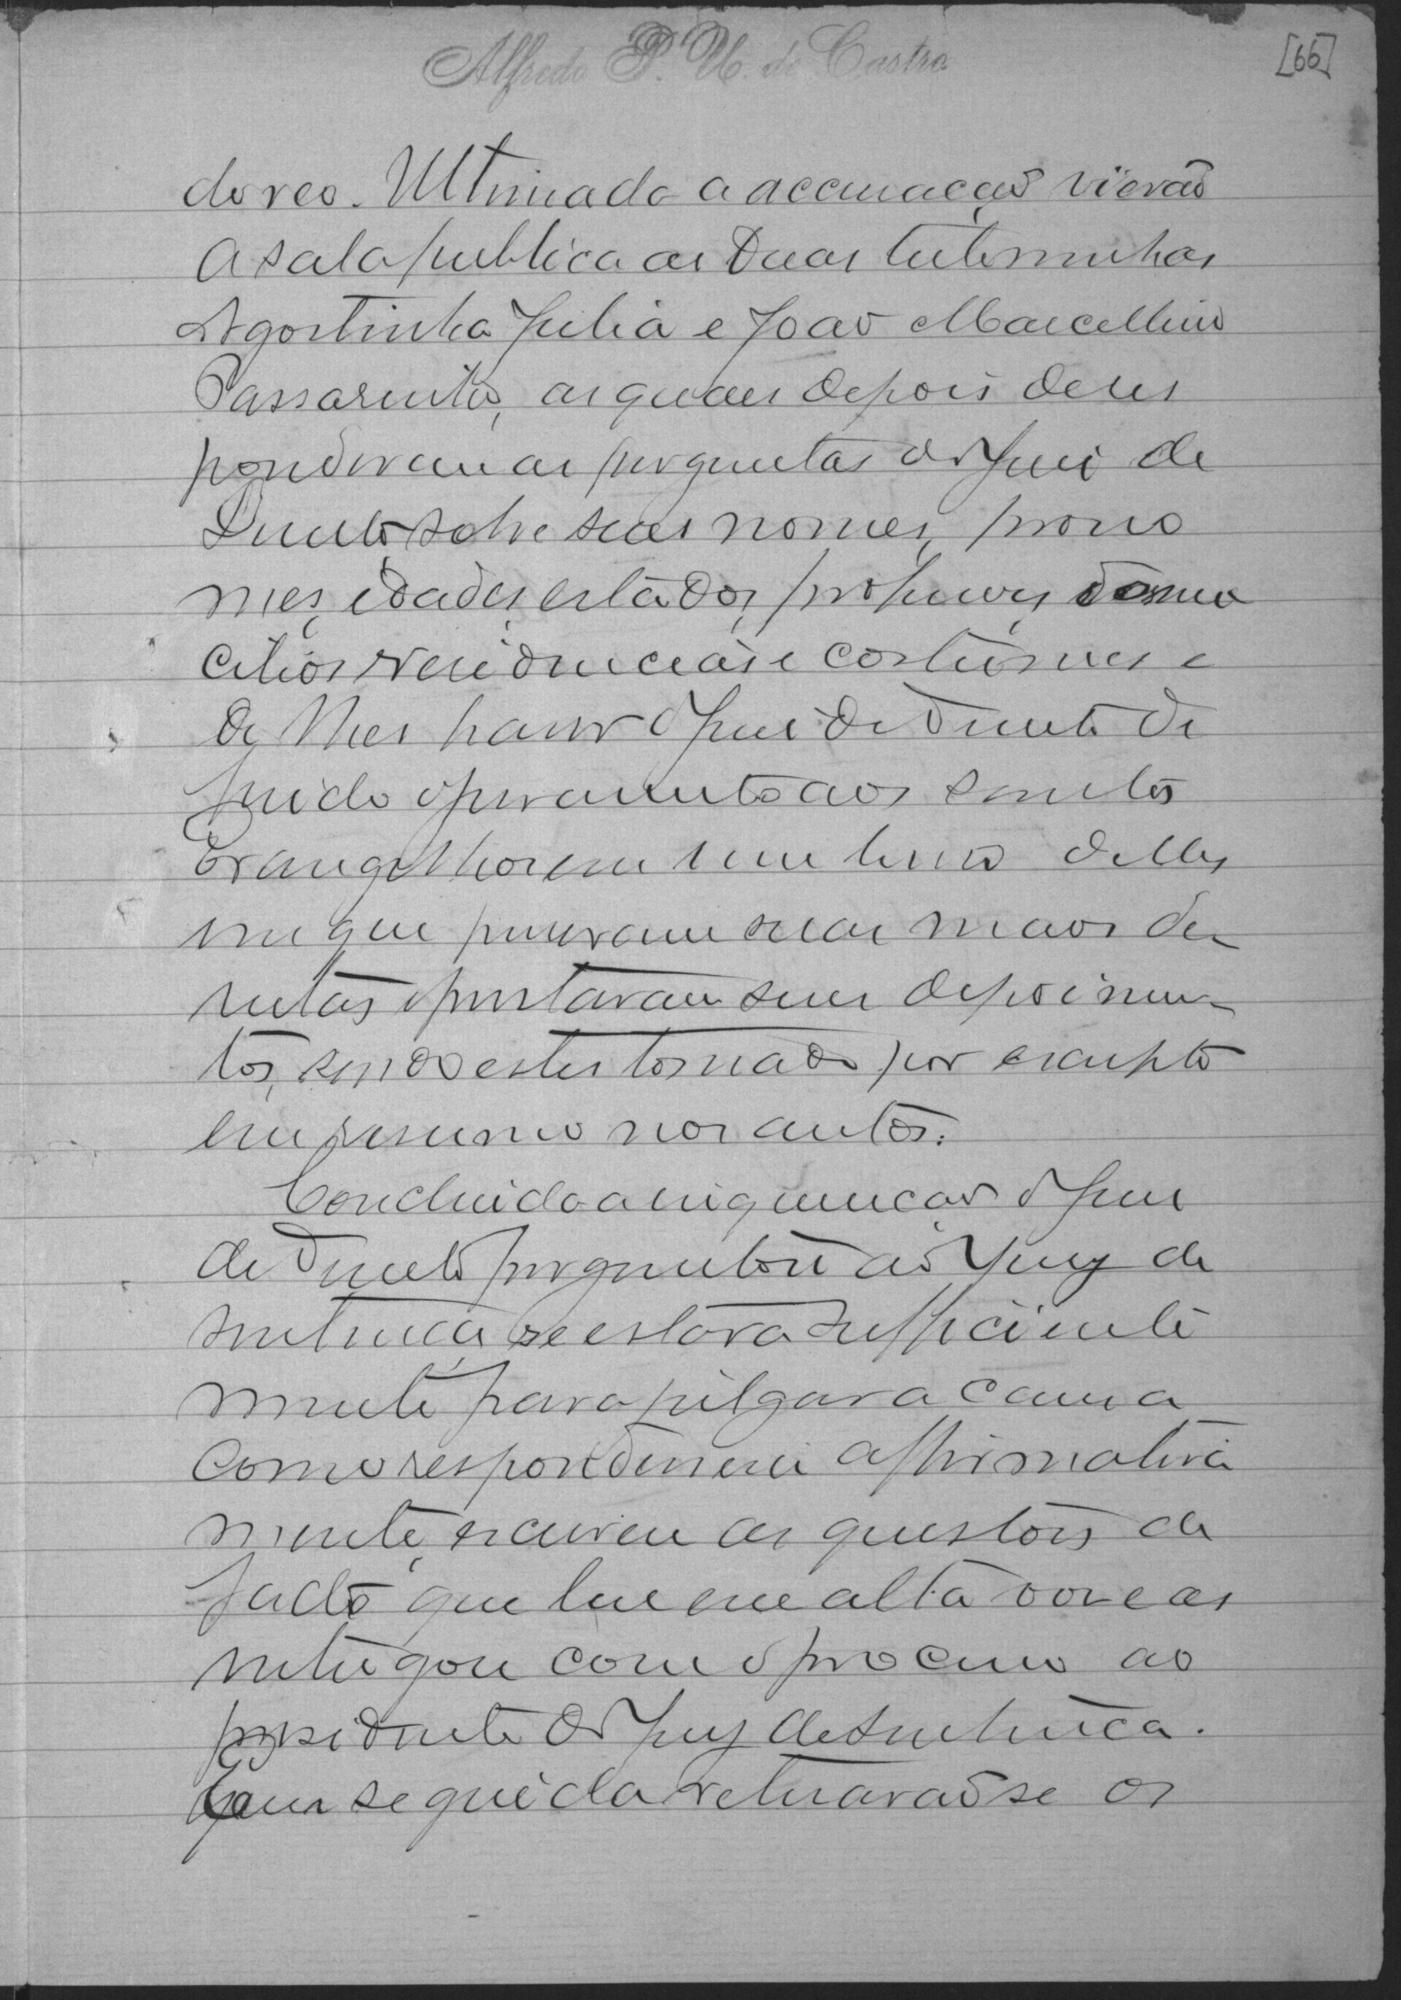 Alfredo P. U. de Castro
[66]
do reo. Ultimada a accusação vierão
a sala publica as duas testemunhas
Agostinha Julia e João Marcellino
Passarinho, as quaes depois de res
ponderam as perguntas do Juiz de
Direito, sobre seus nomes, prono
mes, idades, estados, profissões, domi
cilios residencias e costumes e
de lhes haver o Juiz de Direito de
ferido o juramento aos Santos
Evangelhos em um livro delles
em que puseram suas mãos di
reitas, prestaram seus depoimen
tos, sendo estes tomado por escripto
em resumo nos autos.
Concluida a inquirição o Juiz
de Direito perguntou ao Jury de
sentença, se estava sufficiente
mente para julgar a causa
como respondessem affirmativa
mente, escreveu as questões de
facto que leu em alta voz e as
entregou com o processo ao
presidente do Jury de sentença.
Em seguida retirarão se os